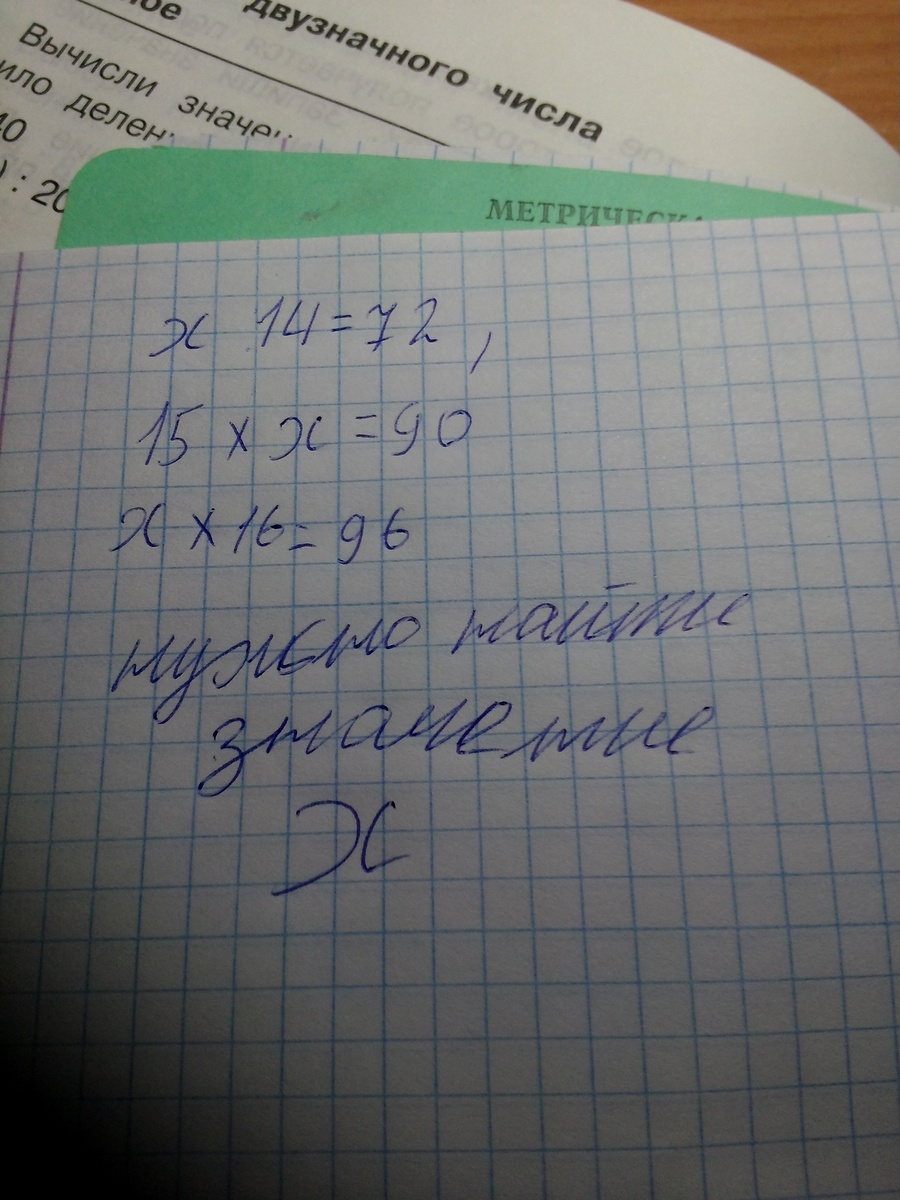 двузначного числа
Вычисли
делен
40
) : 20
МЕТРИЧЕСКА
x 14 = 72 ,
15 × x = 90
x × 16 = 96
нужно найти
значение
x